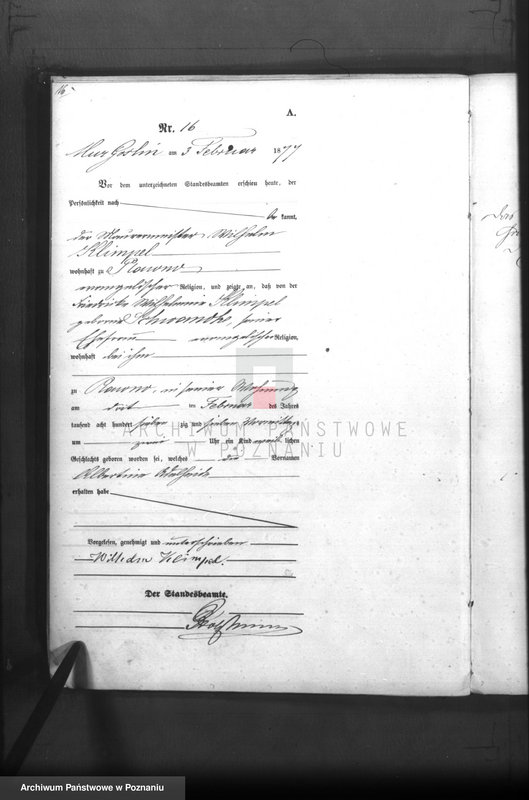 16.
A.
Nr. 16
Mur Goslin am 3 Februar 1877
Vor dem unterzeichneten Standesbeamten erschien heute, der
Persönlichkeit nach
be kannt,
der Maurermeister Wilhelm
Klimpel
wohnhaft zu
evangelischer Religion, und zeigte an, daß von der
Friedrike Wilhelmine Klimpel
geborene seiner
Ehefrau evangelischer Religion,
wohnhaft bei ihm
zu in seiner Wohnung
am ten Februar des Jahres
tausend acht hundert sieben zig und sieben Vormittags
um zwei Uhr ein Kind weib lichen
Geschlechts geboren worden sei, welches die Vornamen
Albertine Adelheide
erhalten habe
Vorgelesen, genehmigt und unterschrieben
Wilhelm Klimpel.
Der Standesbeamte.
ARCHIWUM PAŃSTWOWE
W POZNANIU
Archiwum Państwowe w Poznaniu
Archiwum Państwowe w Poznaniu